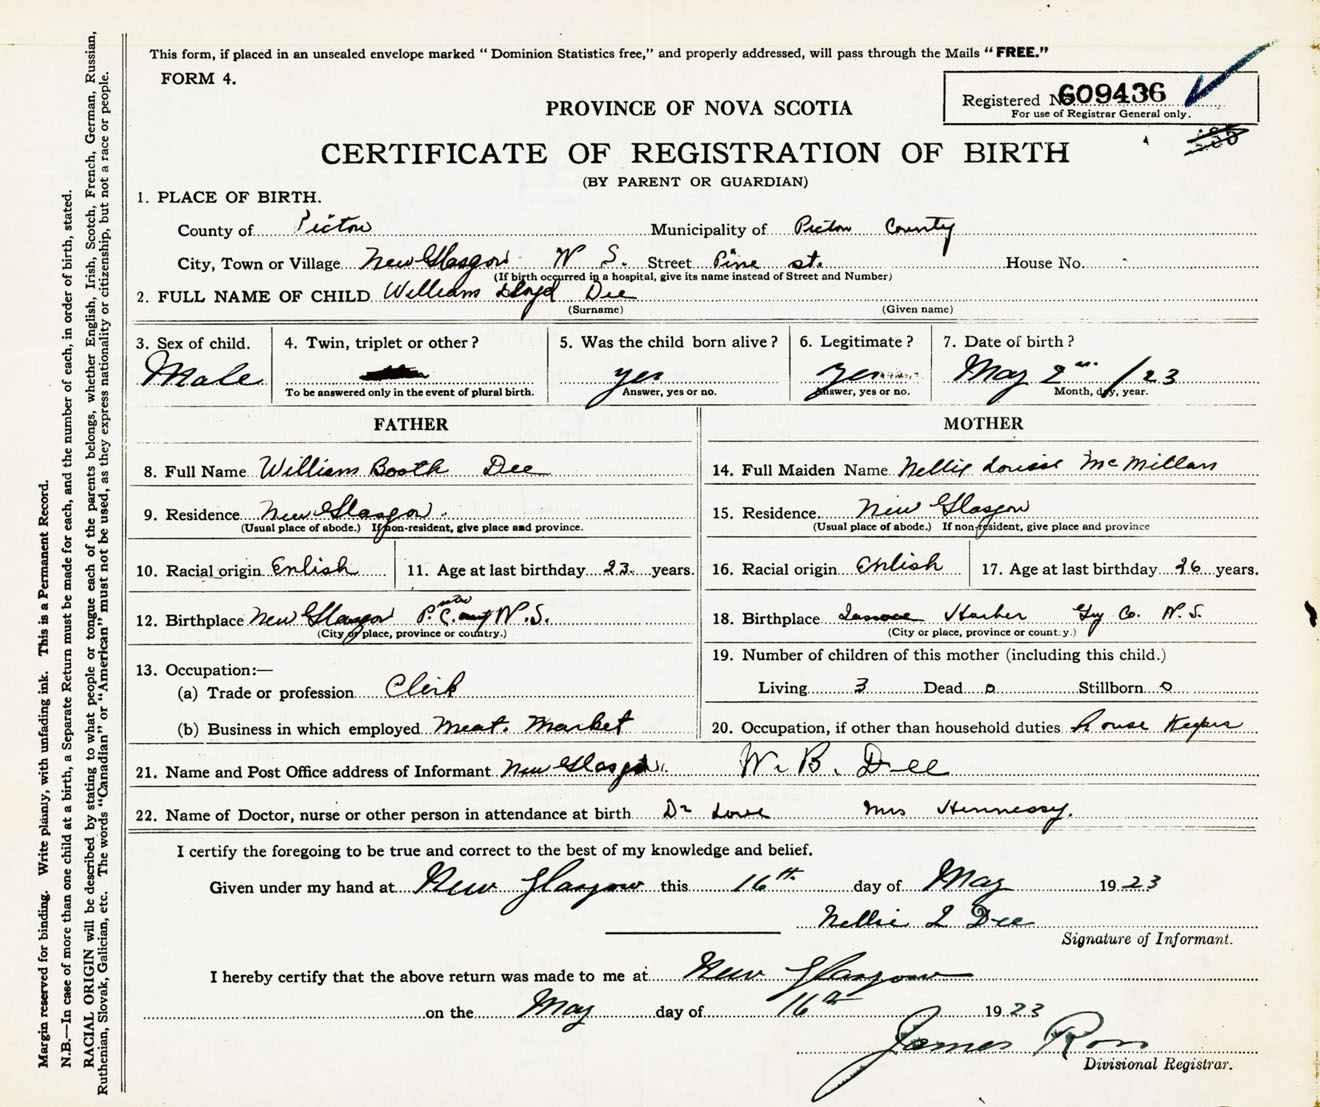 This form, if placed in an unsealed envelope marked "Dominion Statistics free," and properly addressed, will pass through the Mails "FREE."
FORM 4.
Registered No. 609436
For use of Registrar General only.
PROVINCE OF NOVA SCOTIA
CERTIFICATE OF REGISTRATION OF BIRTH
(BY PARENT OR GUARDIAN)
1. PLACE OF BIRTH.
County of Pictou Municipality of Pictou County
City, Town or Village New Glasgow N. S. Street Pine st. House No.
(If birth occurred in a hospital, give its name instead of Street and Number)
2. FULL NAME OF CHILD William Lloyd Dee
(Surname) (Given name)
3. Sex of child. Male
4. Twin, triplet or other?
To be answered only in the event of plural birth.
5. Was the child born alive? yes
Answer, yes or no.
6. Legitimate? yes
Answer, yes or no.
7. Date of birth? May 2nd /23
Month, day, year.
FATHER
8. Full Name William Booth Dee
9. Residence New Glasgow.
(Usual place of abode.) If non-resident, give place and province.
10. Racial origin Enlish 11. Age at last birthday 23 years.
12. Birthplace New Glasgow P. C. N.S.
(City or place, province or country.)
13. Occupation:—
(a) Trade or profession Clerk
(b) Business in which employed Meat. Market
MOTHER
14. Full Maiden Name Nellie Louise McMillan
15. Residence. New Glasgow
(Usual place of abode.) If non-resident, give place and province
16. Racial origin Enlish 17. Age at last birthday 26 years.
18. Birthplace Harber Gy Co. N.S.
(City or place, province or country.)
19. Number of children of this mother (including this child.)
Living 3 Dead 0 Stillborn 0
20. Occupation, if other than household duties house Keeper
21. Name and Post Office address of Informant New Glasgow. W. B. Dee
22. Name of Doctor, nurse or other person in attendance at birth Dr Love Mrs Hennessy.
I certify the foregoing to be true and correct to the best of my knowledge and belief.
Given under my hand at New Glasgow this 16th day of May 1923
Nellie L Dee
Signature of Informant.
I hereby certify that the above return was made to me at New Glasgow
on the May day of 16th 1923
James Ross
Divisional Registrar.
Margin reserved for binding. Write plainly, with unfading ink. This is a Permanent Record.
N.B.—In case of more than one child at a birth, a Separate Return must be made for each, and the number of each, in order of birth, stated.
RACIAL ORIGIN will be described by stating to what people or tongue each of the parents belongs, whether English, Irish, Scotch, French, German, Russian,
Ruthenian, Slovak, Galician, etc. The words "Canadian" or "American" must not be used, as they express nationality or citizenship, but not a race or people.